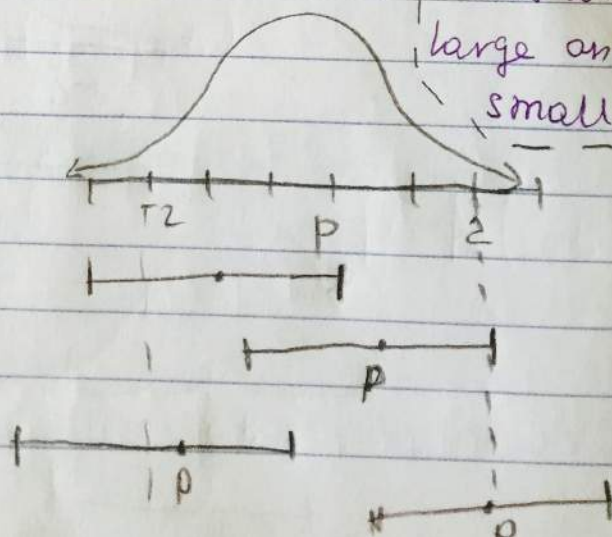 large an
small
-2 P 2
P
P
P